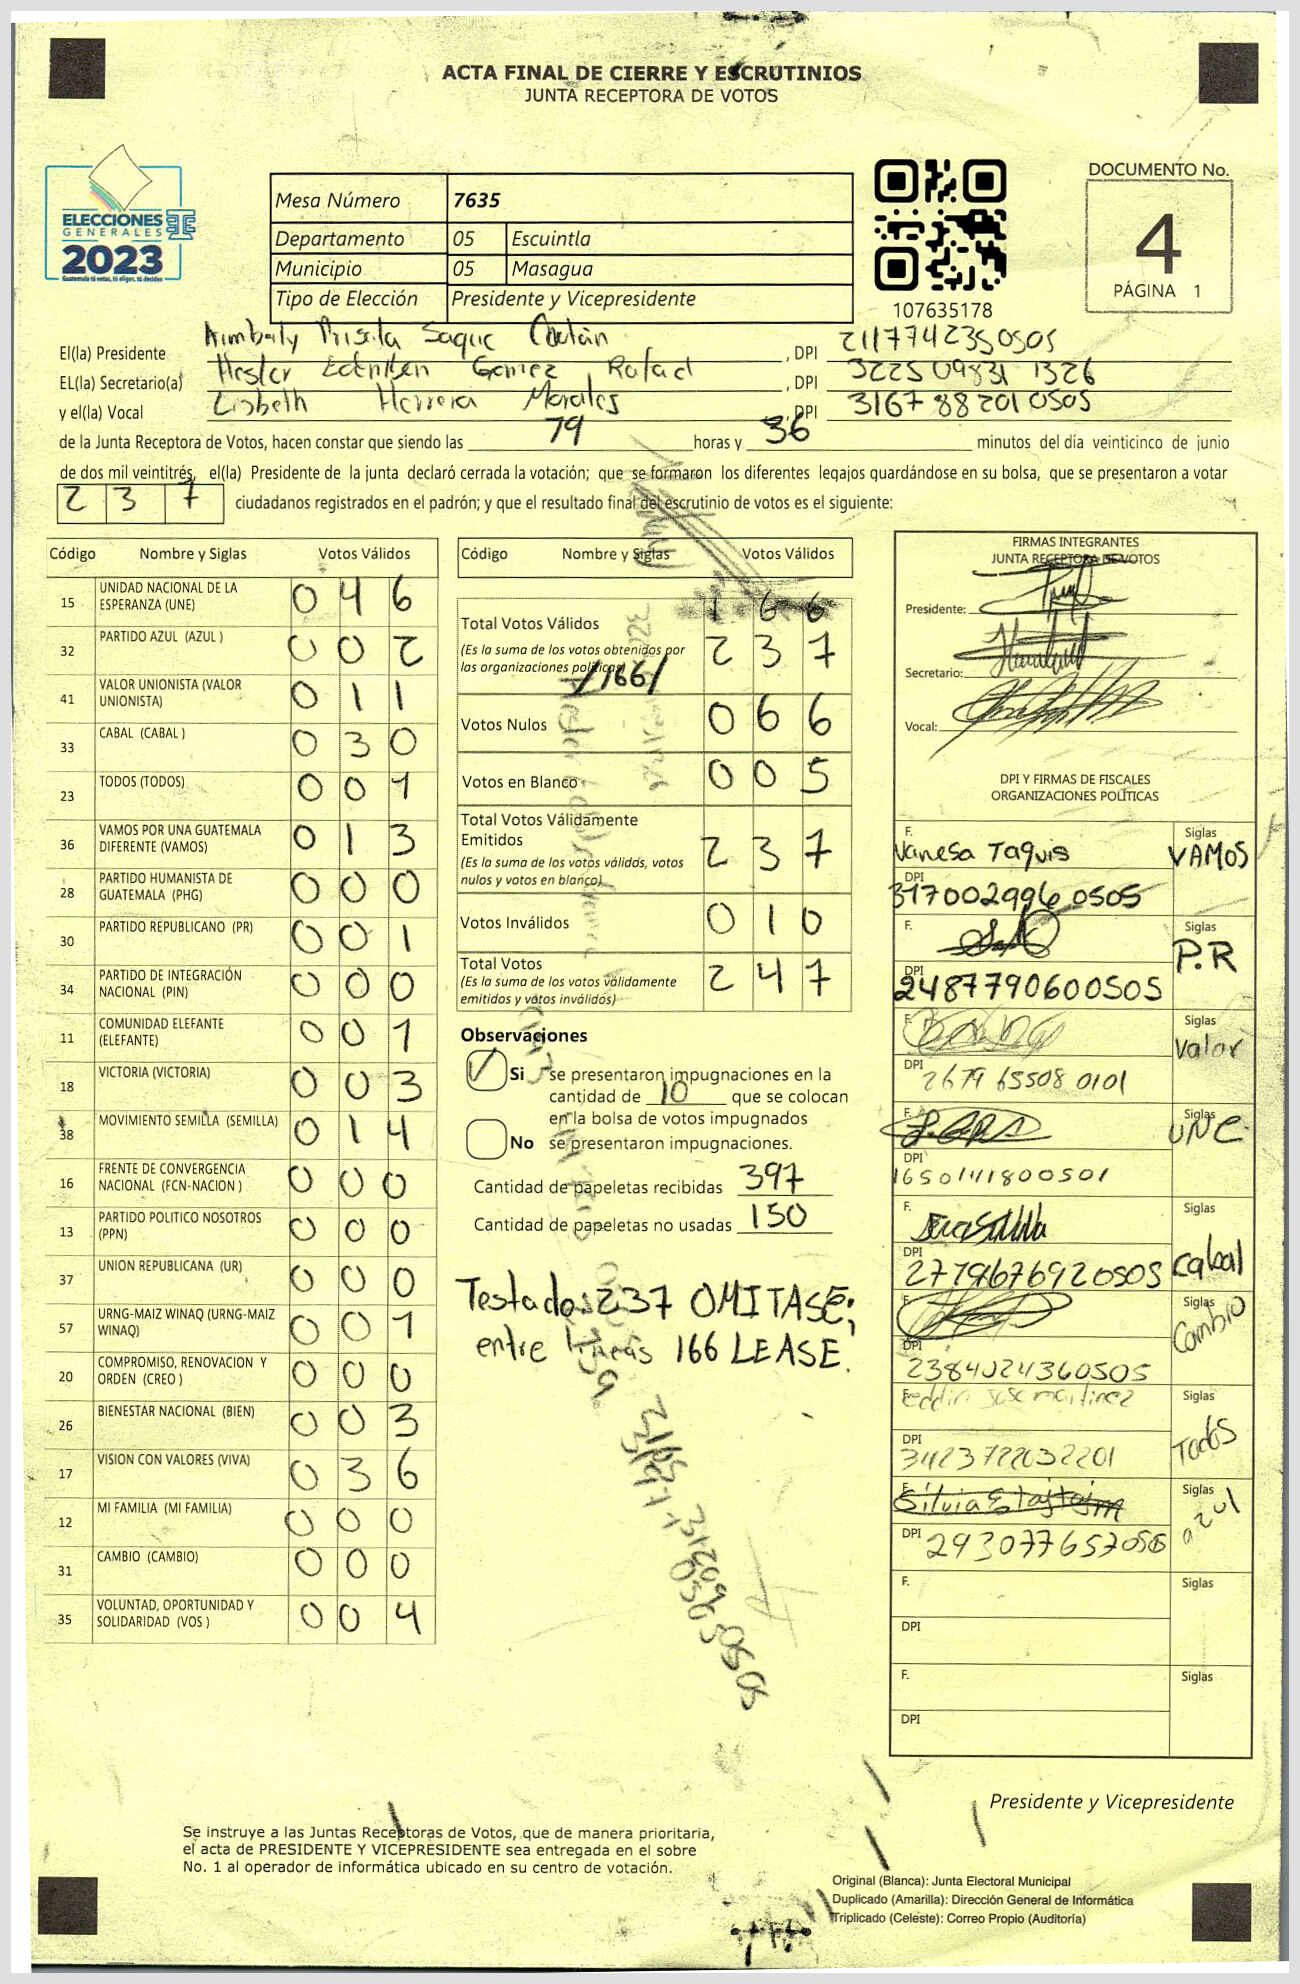 ACTA FINAL DE CIERRE Y ESCRUTINIOS
JUNTA RECEPTORA DE VOTOS
ELECCIONES
GENERALES
2023
Guatemala tú votas, tú eliges, tú decides
Mesa Número 7635
Departamento 05 Escuintla
Municipio 05 Masagua
Tipo de Elección Presidente y Vicepresidente
107635178
DOCUMENTO No.
4
PÁGINA 1
El(la) Presidente Kimbaly Prisila Saquic , DPI 211774235 0505
EL(la) Secretario(a) Hester Gomez Rafael , DPI 3225 09831 1326
y el(la) Vocal Lisbeth Herrera Morales , DPI 3167 88201 0505
de la Junta Receptora de Votos, hacen constar que siendo las 19 horas y 36 minutos del día veinticinco de junio
de dos mil veintitrés, el(la) Presidente de la junta declaró cerrada la votación; que se formaron los diferentes legajos quardándose en su bolsa, que se presentaron a votar
2 3 7 ciudadanos registrados en el padrón; y que el resultado final del escrutinio de votos es el siguiente:
Código Nombre y Siglas Votos Válidos
15 UNIDAD NACIONAL DE LA ESPERANZA (UNE) 0 4 6
32 PARTIDO AZUL (AZUL ) 0 0 2
41 VALOR UNIONISTA (VALOR UNIONISTA) 0 1 1
33 CABAL (CABAL ) 0 3 0
23 TODOS (TODOS) 0 0 1
36 VAMOS POR UNA GUATEMALA DIFERENTE (VAMOS) 0 1 3
28 PARTIDO HUMANISTA DE GUATEMALA (PHG) 0 0 0
30 PARTIDO REPUBLICANO (PR) 0 0 1
34 PARTIDO DE INTEGRACIÓN NACIONAL (PIN) 0 0 0
11 COMUNIDAD ELEFANTE (ELEFANTE) 0 0 1
18 VICTORIA (VICTORIA) 0 0 3
38 MOVIMIENTO SEMILLA (SEMILLA) 0 1 4
16 FRENTE DE CONVERGENCIA NACIONAL (FCN-NACION ) 0 0 0
13 PARTIDO POLITICO NOSOTROS (PPN) 0 0 0
37 UNION REPUBLICANA (UR) 0 0 0
57 URNG-MAIZ WINAQ (URNG-MAIZ WINAQ) 0 0 1
20 COMPROMISO, RENOVACION Y ORDEN (CREO ) 0 0 0
26 BIENESTAR NACIONAL (BIEN) 0 0 3
17 VISION CON VALORES (VIVA) 0 3 6
12 MI FAMILIA (MI FAMILIA) 0 0 0
31 CAMBIO (CAMBIO) 0 0 0
35 VOLUNTAD, OPORTUNIDAD Y SOLIDARIDAD (VOS ) 0 0 4
Código Nombre y Siglas Votos Válidos
1 6 6
Total Votos Válidos 2 3 7
(Es la suma de los votos obtenidos por
las organizaciones políticas) /166/
Votos Nulos 0 6 6
Votos en Blanco 0 0 5
Total Votos Válidamente
Emitidos 2 3 7
(Es la suma de los votos válidos, votos
nulos y votos en blanco)
Votos Inválidos 0 1 0
Total Votos 2 4 7
(Es la suma de los votos válidamente
emitidos y votos inválidos)
Observaciones
Si se presentaron impugnaciones en la
cantidad de 10 que se colocan
en la bolsa de votos impugnados
No se presentaron impugnaciones.
Cantidad de papeletas recibidas 397
Cantidad de papeletas no usadas 150
Testados 237 OMITASE;
entre lineas 166 LEASE.
FIRMAS INTEGRANTES
JUNTA RECEPTORA DE VOTOS
Presidente:
Secretario:
Vocal:
DPI Y FIRMAS DE FISCALES
ORGANIZACIONES POLÍTICAS
F. Vanesa Taquis Siglas VAMOS
DPI 317002996 0505
F. Siglas P.R
DPI 2487790600505
F. Siglas Valor
DPI 2679 65508 0101
F. Siglas UNE
DPI 1650141800501
F. Siglas Cabal
DPI 2779676920505
F. Siglas Cambio
DPI 2384024360505
F. Jose martinez Siglas Todos
DPI 3423722032201
F. Silvia Siglas azul
DPI 2930776570505
F. Siglas
DPI
F. Siglas
DPI
Presidente y Vicepresidente
Se instruye a las Juntas Receptoras de Votos, que de manera prioritaria,
el acta de PRESIDENTE Y VICEPRESIDENTE sea entregada en el sobre
No. 1 al operador de informática ubicado en su centro de votación.
Original (Blanca): Junta Electoral Municipal
Duplicado (Amarilla): Dirección General de Informática
Triplicado (Celeste): Correo Propio (Auditoría)